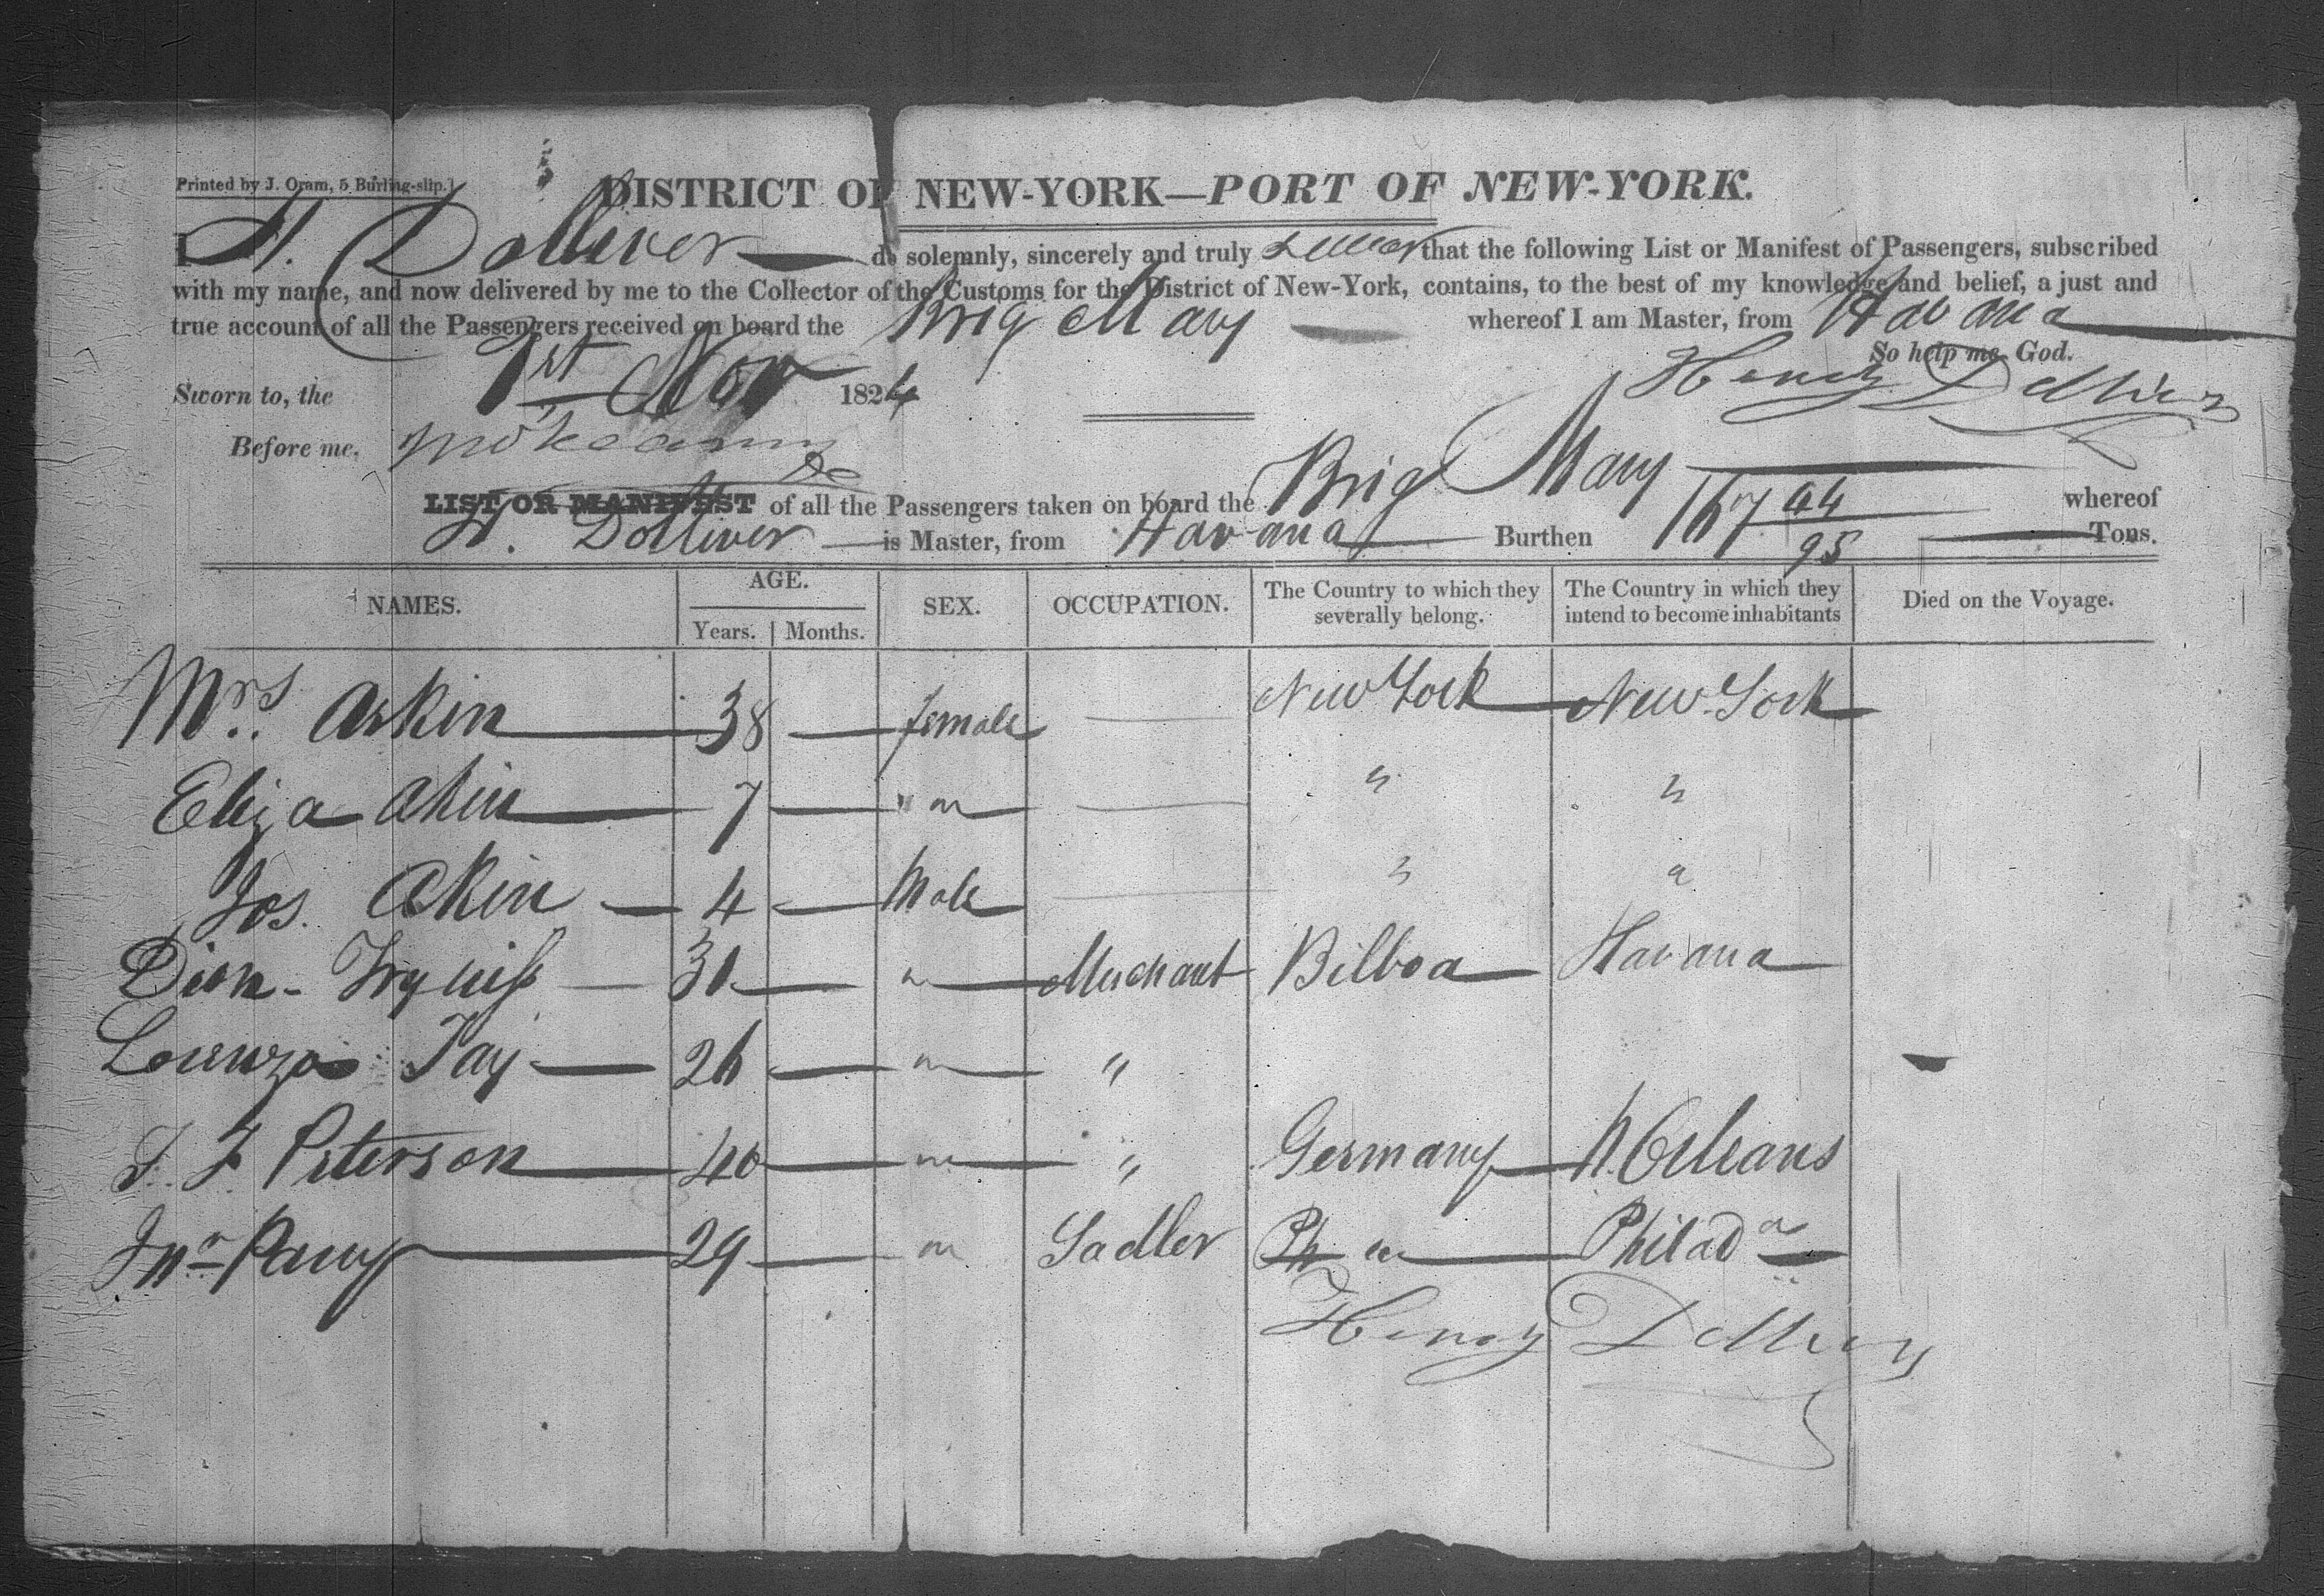 Printed by J. Oram, 5 Burling-slip.]
DISTRICT OF NEW-YORK—PORT OF NEW-YORK.
I H. Dolliver do solemnly, sincerely and truly swear that the following List or Manifest of Passengers, subscribed
with my name, and now delivered by me to the Collector of the Customs for the District of New-York, contains, to the best of my knowledge and belief, a just and
true account of all the Passengers received on board the Brig Mary whereof I am Master, from Havana
So help me God.
Sworn to, the 1st Nov 1824 Henry Dolliver
Before me,
LIST OR MANIFEST of all the Passengers taken on board the Brig Mary whereof
H. Dolliver is Master, from Havana Burthen 167 44/95 Tons.
NAMES. AGE. Years. Months. SEX. OCCUPATION. The Country to which they severally belong. The Country in which they intend to become inhabitants Died on the Voyage.
Mrs. Askin 38 — female — New York New York
Eliza Akin 7 — " — " "
Jos. Akin 4 — Male — " "
31 — " Merchant Bilboa Havana
Lorenzo 26 — " "
Peterson 40 — " " Germany N Orleans
Jno 29 — " Sadler Philada
Henry Dolliver